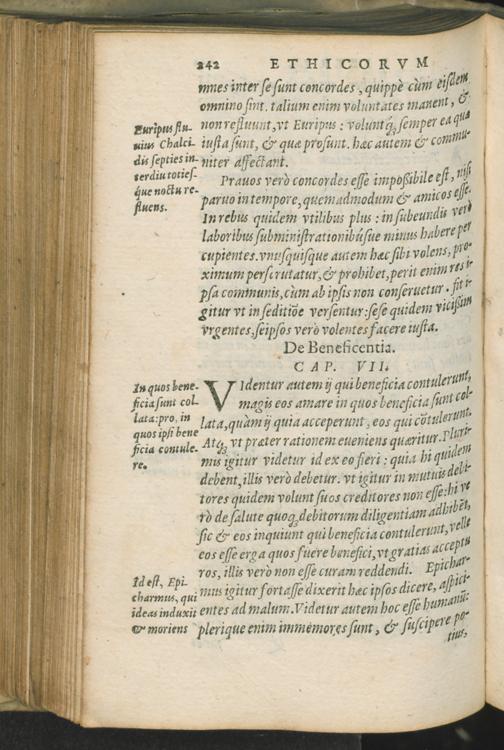 242 ETHICORVM
mnes inter se sunt concordes, quippè cùm eisdem
omnino sint. talium enim voluntates manent, &
non refluunt, vt Euripus: voluntq́; semper ea quæ
iusta sunt, & quæ prosunt. hæc autem & commu-
niter affectant.
Euripus flu-
uius Chalci-
dis septies in-
terdiu toties-
que noctu re-
fluens.
Prauos verò concordes esse impoßibile est, nisi
paruo in tempore, quemadmodum & amicos esse.
In rebus quidem vtilibus plus: in subeundis verò
laboribus subministrationibúsue minus habere per
cupientes. vnusquisque autem hæc sibi volens, pro-
ximum perscrutatur, & prohibet, perit enim res i-
psa communis, cùm ab ipsis non conseruetur. fit i-
gitur vt in seditiõe versentur: sese quidem vicißim
vrgentes, seipsos verò volentes facere iusta.
De Beneficentia.
CAP. VII.
In quos bene-
ficia sunt col-
lata: pro, in
quos ipsi bene
ficia contule-
re.
VIdentur autem ij qui beneficia contulerunt,
magis eos amare in quos beneficia sunt col-
lata, quàm ij quia acceperunt, eos qui cõtulerunt.
Atq; vt præter rationem eueniens quæritur. Pluri-
mis igitur videtur id ex eo fieri: quia hi quidem
debent, illis verò debetur. vt igitur in mutuis debi-
tores quidem volunt suos creditores non esse: hi ve
rò de salute quoq; debitorum diligentiam adhibẽt,
sic & eos inquiunt qui beneficia contulerunt, velle
eos esse erga quos fuere benefici, vt gratias acceptu
ros, illis verò non esse curam reddendi. Epichar-
mus igitur fortasse dixerit hæc ipsos dicere, aspici-
entes ad malum. Videtur autem hoc esse humanũ:
plerique enim immemores sunt, & suscipere po-
tius,
Id est, Epi-
charmus, qui
ideas induxit
& moriens